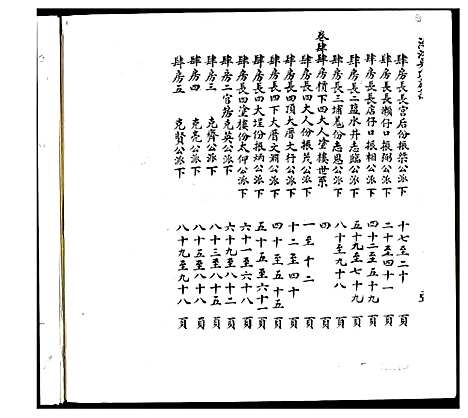 肆房長長宮后份振榮公派下 十七至二十 頁
肆房長長瀨仔口振粥公派下 二十至四十一 頁
肆房長長店仔口振相公派下 四十二至五十九 頁
肆房長二蔬水井志臨公派下 五十九至七十九 頁
肆房長三埔尾份志恩公派下 八十至九十八 頁
卷肆肆房積下四大人塗樓世系 四
肆房長四大人份振茂公派下 一至十二 頁
肆房長四頂大厝文行公派下 十二至四十 頁
肆房長四下大厝文炯公派下 四十至五十五 頁
肆房長四大埕份振炳公派下 五十五至六十一 頁
肆房長四塗樓份太仰公派下 六十一至六十八 頁
肆房二官房克英公派下 六十九至八十二 頁
肆房三 克齊公派下 八十三至八十五 頁
肆房四 克亮公派下 八十五至八十九 頁
肆房五 克賢公派下 八十九至九十八 頁